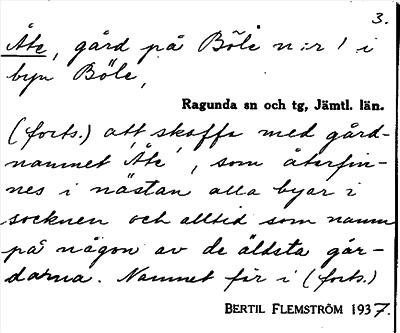 3.
Åte, gård på Böle n:r 1 i
byn Böle,
Ragunda sn och tg, Jämtl. län.
(forts.) att skaffa med gård-
namnet Åte, som återfin-
nes i nästan alla byar i
socknen och alltid som namn
på någon av de äldsta går-
darna. Namnet får i (forts.)
BERTIL FLEMSTRÖM 1937.